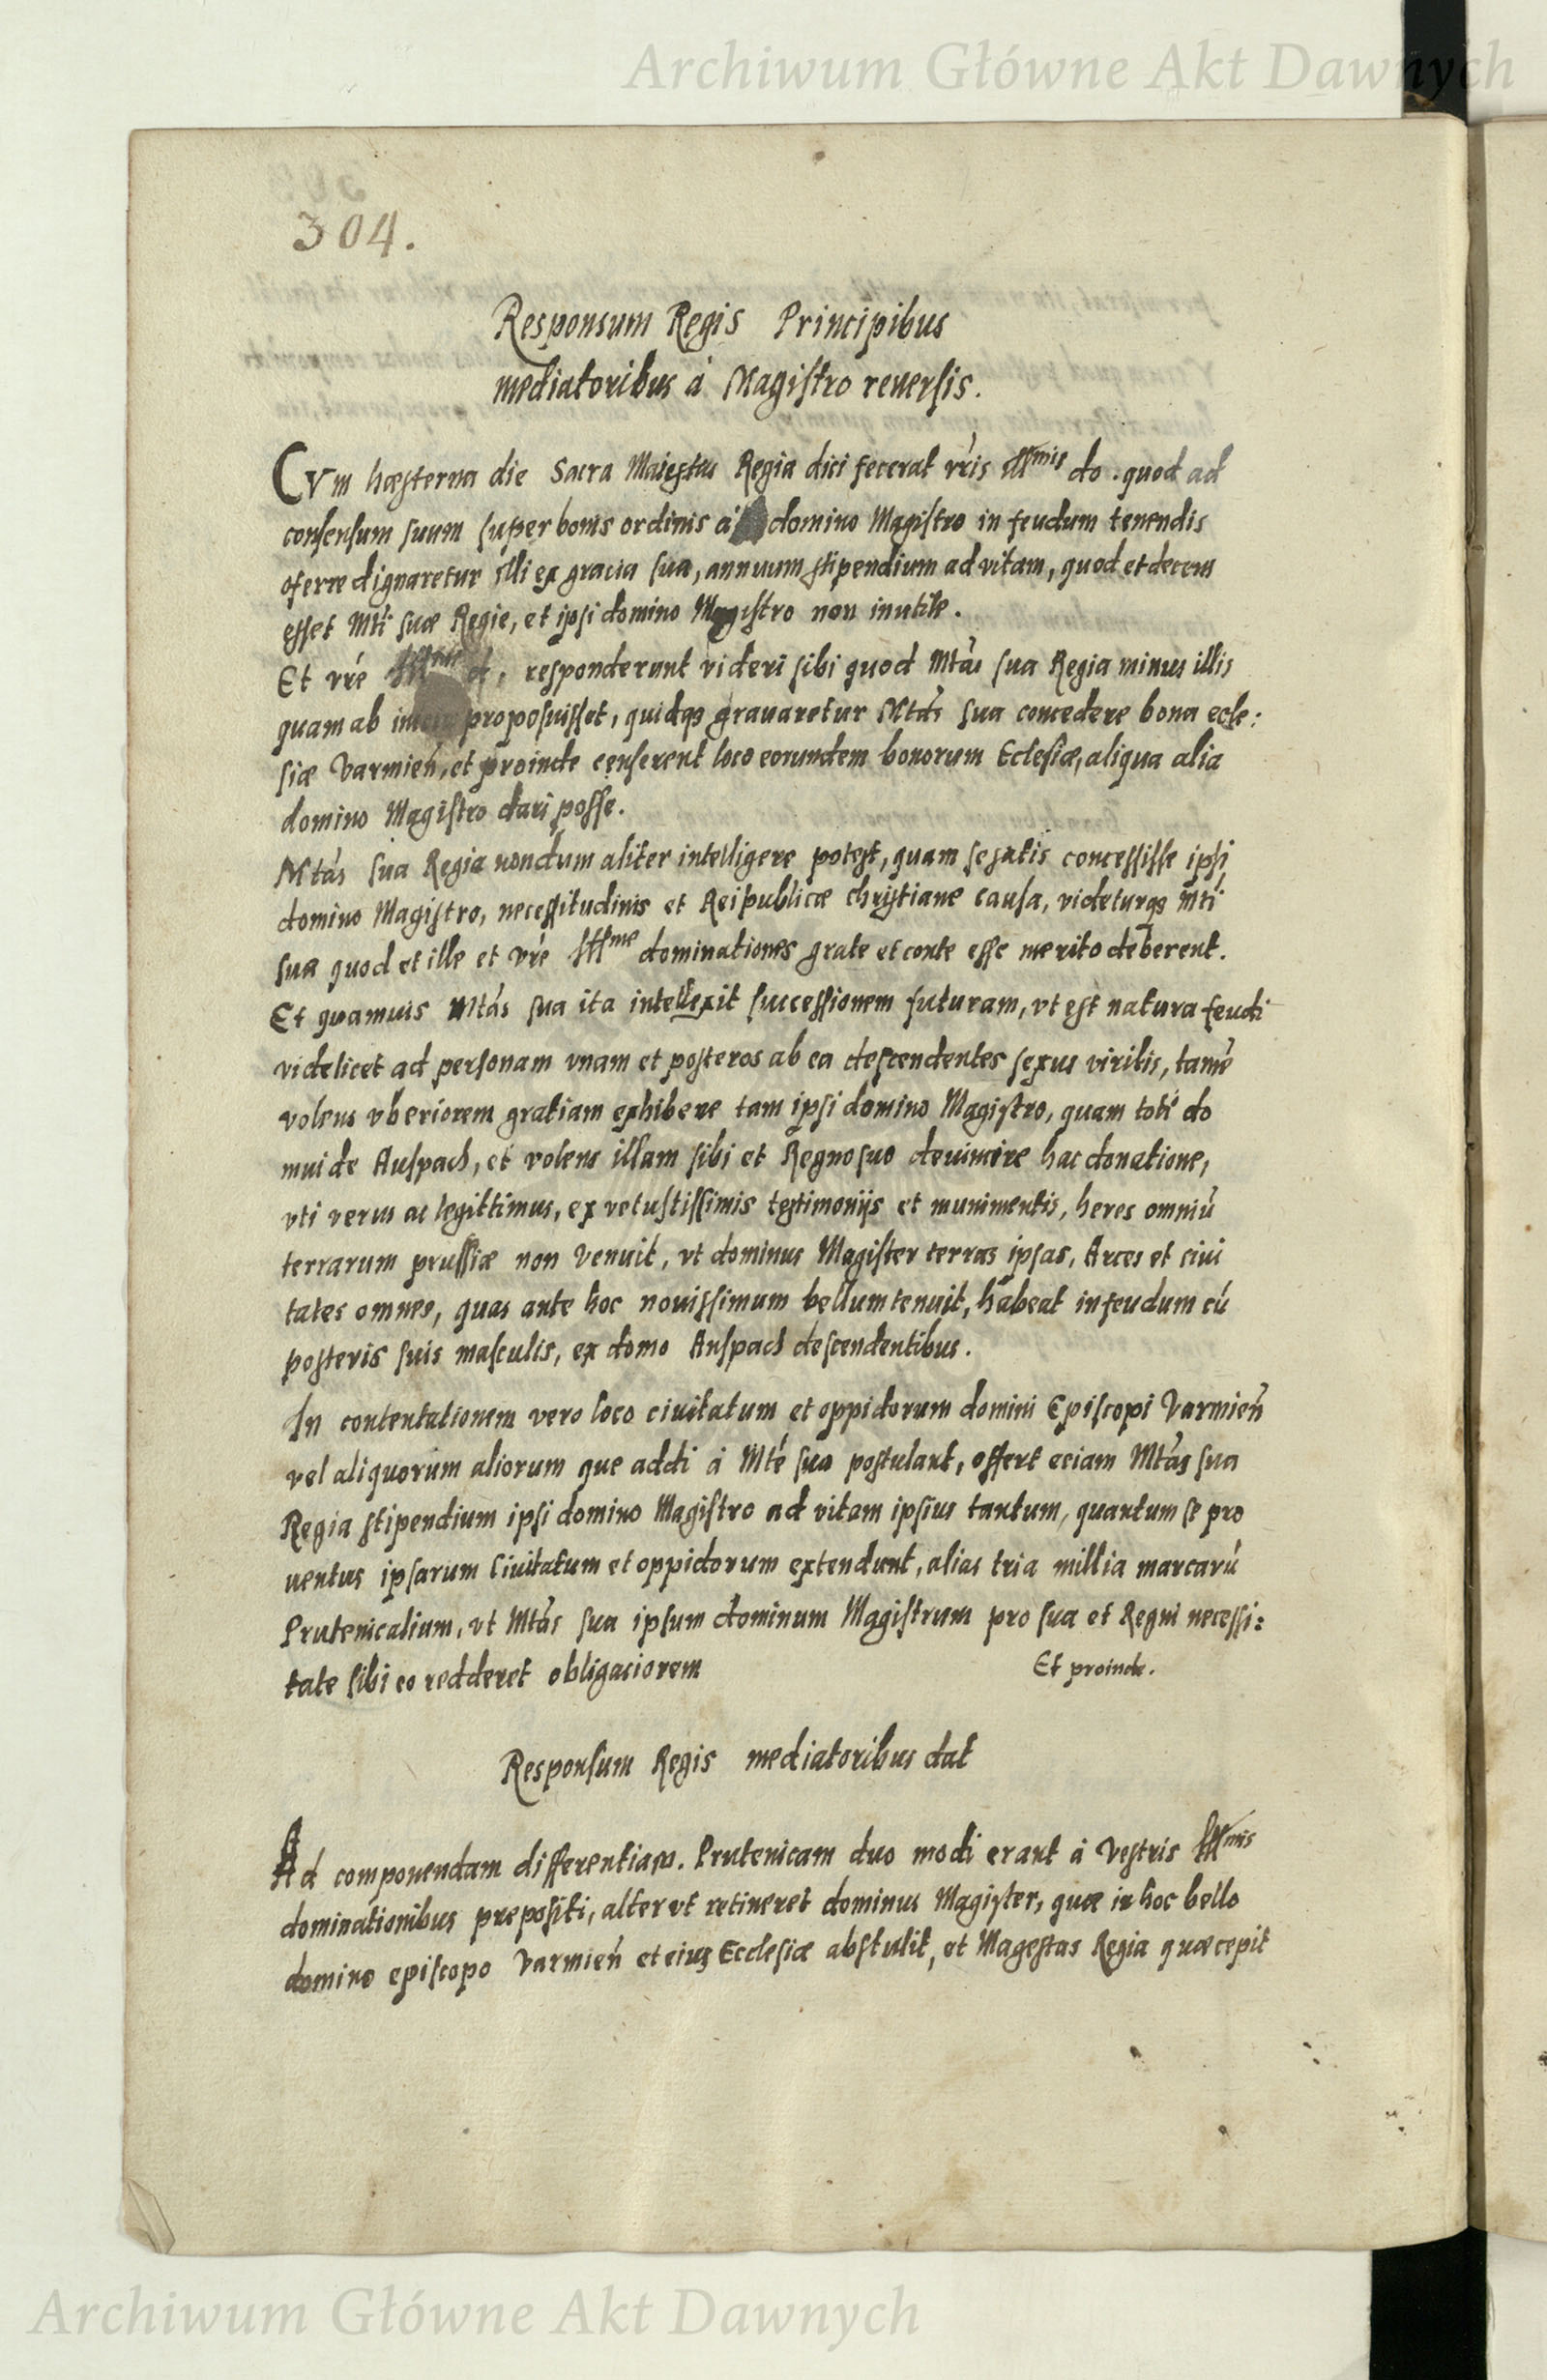 Archiwum Główne Akt Dawnych
304.
Responsum Regis Principibus
mediatoribus à Magistro reuersis.
CVm hæsterna die Sacra Maiestas Regia dici fecerat vr̃is Illmis do. quod ad
consensum suum super bonis ordinis à domino Magistro in feudum tenendis
oferre dignaretur illi ex gracia sua, annuum stipendium ad vitam, quod et decens
esset Mti suæ Regie, et ipsi domino Magistro non inutile.
Et vr̃e Illme d, responderunt videri sibi quod Mtas sua Regia minus illis
quam ab proposuisset, quidqȝ grauaretur Mtas sua concedere bona ecle:
siæ Varmien̄, et proinde censerent loco eorundem bonorum Eclesiæ, aliqua alia
domino Magistro dari posse.
Mtas sua Regia nondum aliter intelligere potest, quam se satis concessisse ipsi
domino Magistro, necessitudinis et Reipublicæ christiane causa, videturqȝ mti
sua quod et ille et vr̃e Illme dominationes grate et conte esse merito deberent.
Et quamuis Mtas sua ita intellexit successionem futuram, vt est natura feudi
videlicet ad personam vnam et posteros ab ea descendentes sexus virilis, tamē
volens vberiorem gratiam exhibere tam ipsi domino Magistro, quam toti do
mui de Anspach, et volens illam sibi et Regno suo deuincire hac donatione,
vti verus ac legittimus, ex vetustissimis testimonijs et munimentis, heres omniū
terrarum prussiæ non venuit, vt dominus Magister terras ipsas, Arces et ciui
tates omnes, quas ante hoc nouissimum bellum tenuit, habeat in feudum cū
posteris suis masculis, ex domo Anspach descendentibus.
In contentationem vero loco ciuitatum et oppidorum domini Episcopi Varmien̄
vel aliquorum aliorum que addi à Mte sua postulant, offert eciam Mtas sua
Regia stipendium ipsi domino Magistro ad vitam ipsius tantum, quantum se pro
uentus ipsarum Ciuitatum et oppidorum extendunt, alias tria millia marcarū
Prutenicalium, vt Mtas sua ipsum dominum Magistrum pro sua et Regni necessi:
tate sibi eo redderet obligaciorem Et proinde.
Responsum Regis mediatoribus dat
Ad componendam differentiam. Prutenicam duo modi erant à Vestris Illmis
dominationibus prepositi, alter vt retineret dominus Magister, quæ in hoc bello
domino episcopo Varmien̄ et eius Ecclesiæ abstulit, et Magestas Regia quæ cepit
Archiwum Główne Akt Dawnych